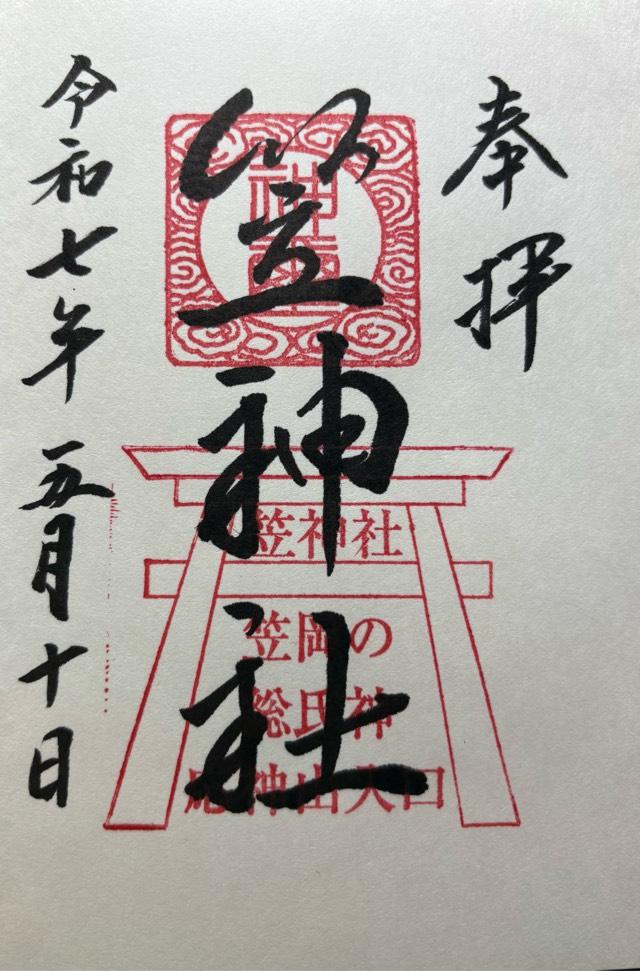 奉拝
笠神社
神璽
笠神社
笠岡の
総氏神
応神山入口
令和七年五月十日